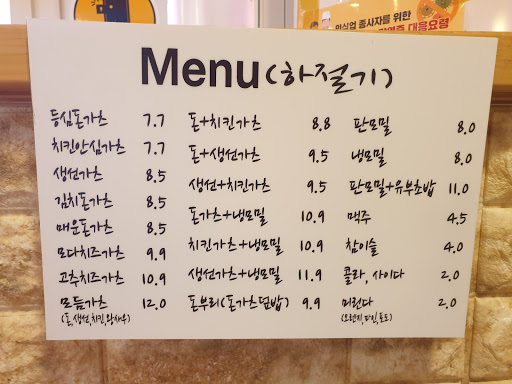 외식업 종사자를 위한
대응요령
Menu (하절기)
등심돈가츠 7.7
치킨안심가츠 7.7
생선가츠 8.5
김치돈가츠 8.5
매운돈가츠 8.5
모다치즈가츠 9.9
고추치즈가츠 10.9
모듬가츠 12.0
(돈,생선,치킨,왕새우)
돈+치킨가츠 8.8
돈+생선가츠 9.5
생선+치킨가츠 9.5
돈가츠+냉모밀 10.9
치킨가츠+냉모밀 10.9
생선가츠+냉모밀 11.9
돈부리(돈가츠덮밥) 9.9
판모밀 8.0
냉모밀 8.0
판모밀+유부초밥 11.0
맥주 4.5
참이슬 4.0
콜라, 사이다 2.0
미린다 2.0